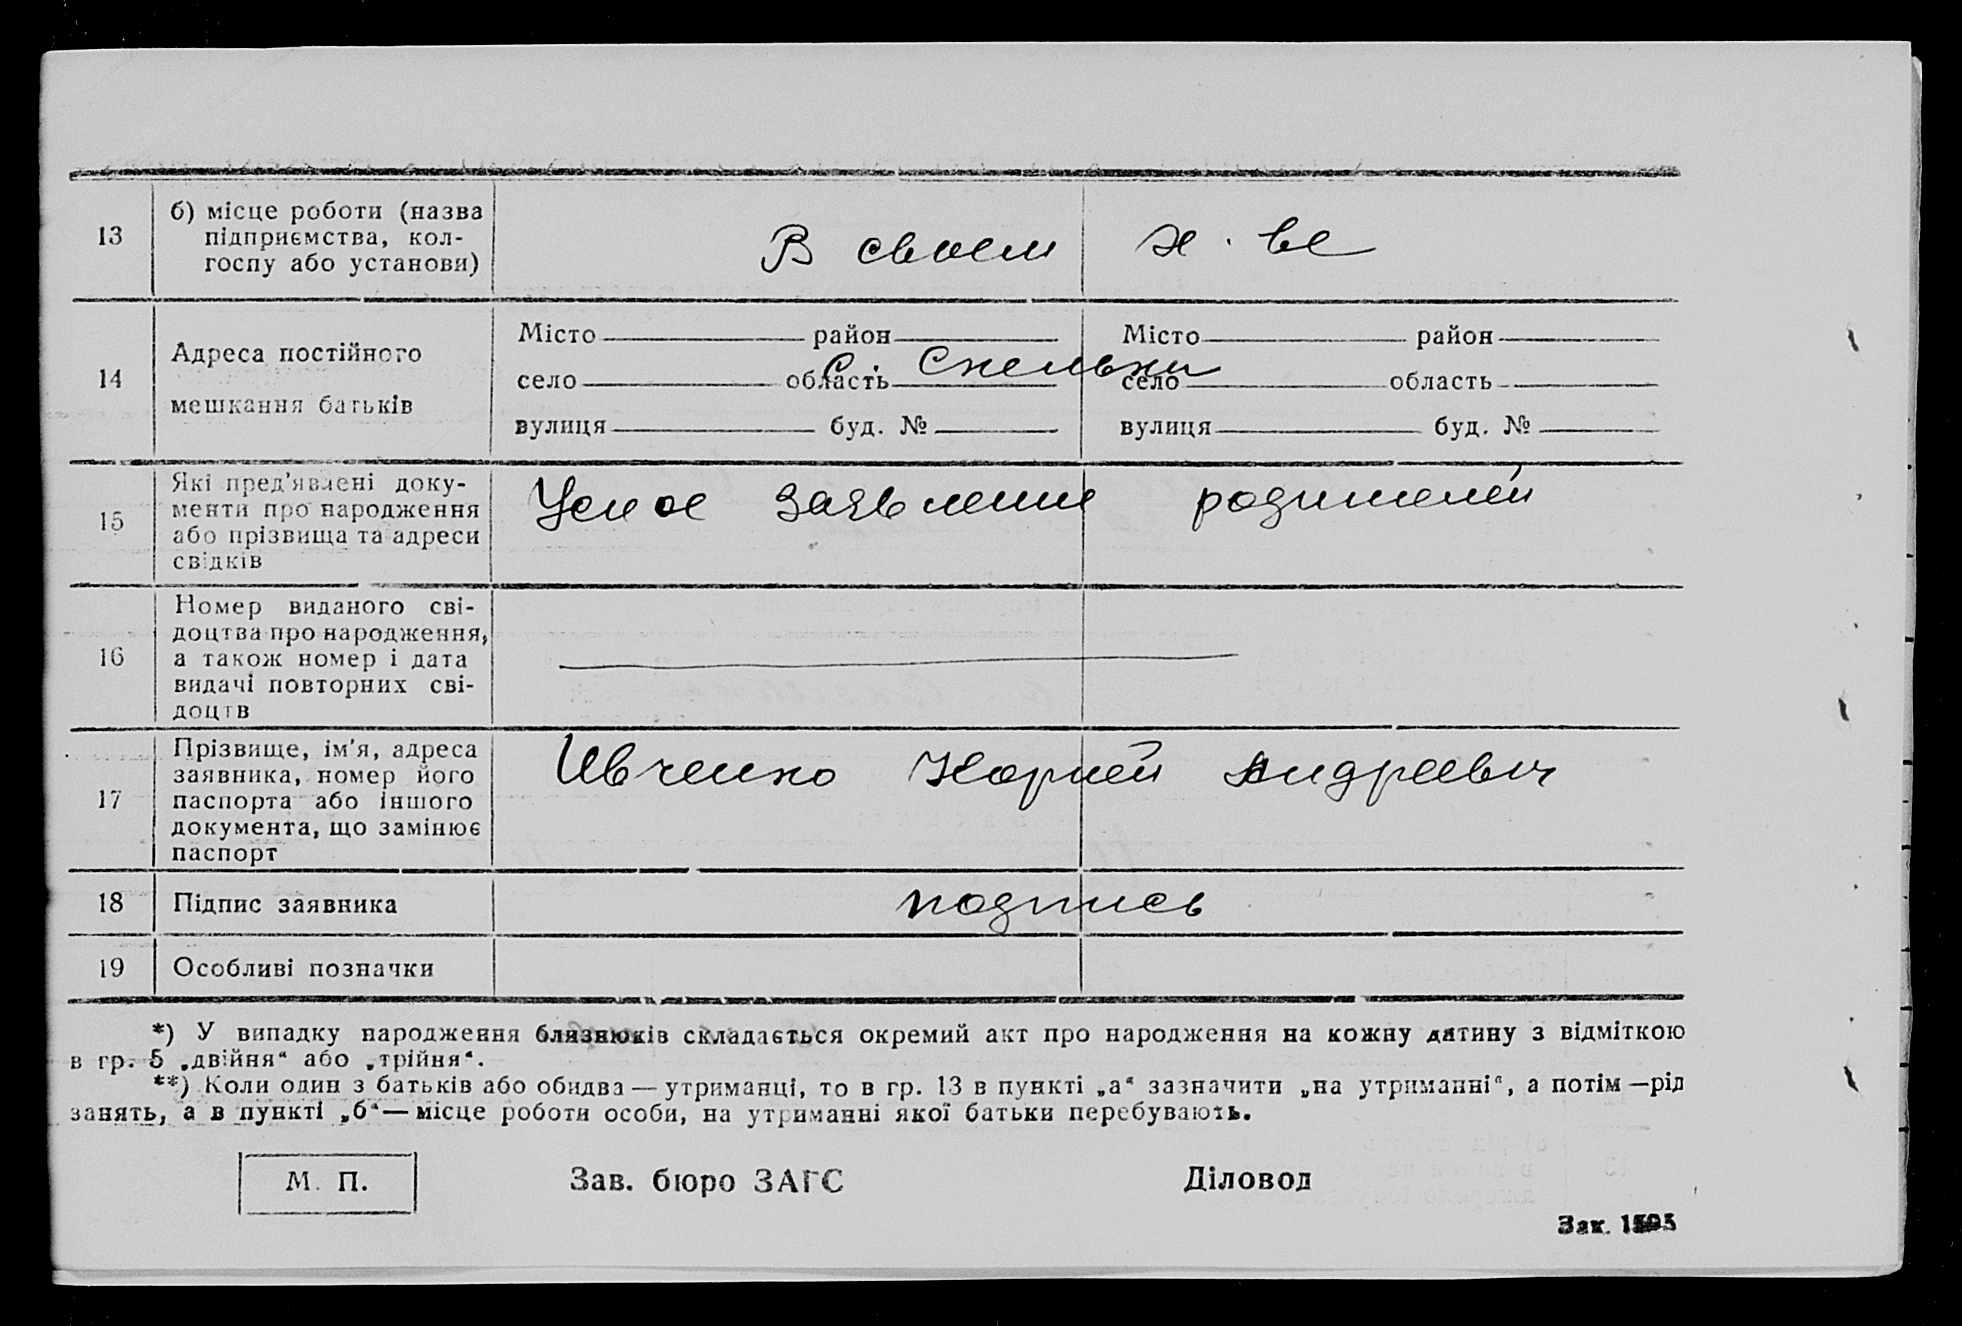 13
б) місце роботи (назва
підприємства, кол-
госпу або установи)
В своем х-ве
14
Адреса постійного
мешкання батьків
Місто район
село область
вулиця буд. №
Місто район
село область
вулиця буд. №
с. Скельки
15
Які пред'явлені доку-
менти про народження
або прізвища та адреси
свідків
Усное заявление родителей
16
Номер виданого сві-
доцтва про народження,
а також номер і дата
видачі повторних сві-
доцтв
17
Прізвище, ім'я, адреса
заявника, номер його
паспорта або іншого
документа, що замінює
паспорт
Ивченко Корней Андреевич
18
Підпис заявника
подпись
19
Особливі позначки
*) У випадку народження близнюків складається окремий акт про народження на кожну дитину з відміткою
в гр. 5 „двійня“ або „трійня“.
**) Коли один з батьків або обидва — утриманці, то в гр. 13 в пункті „а“ зазначити „на утриманні“, а потім — рід
занять, а в пункті „б“ — місце роботи особи, на утриманні якої батьки перебувають.
М. П.
Зав. бюро ЗАГС
Діловод
Зак.